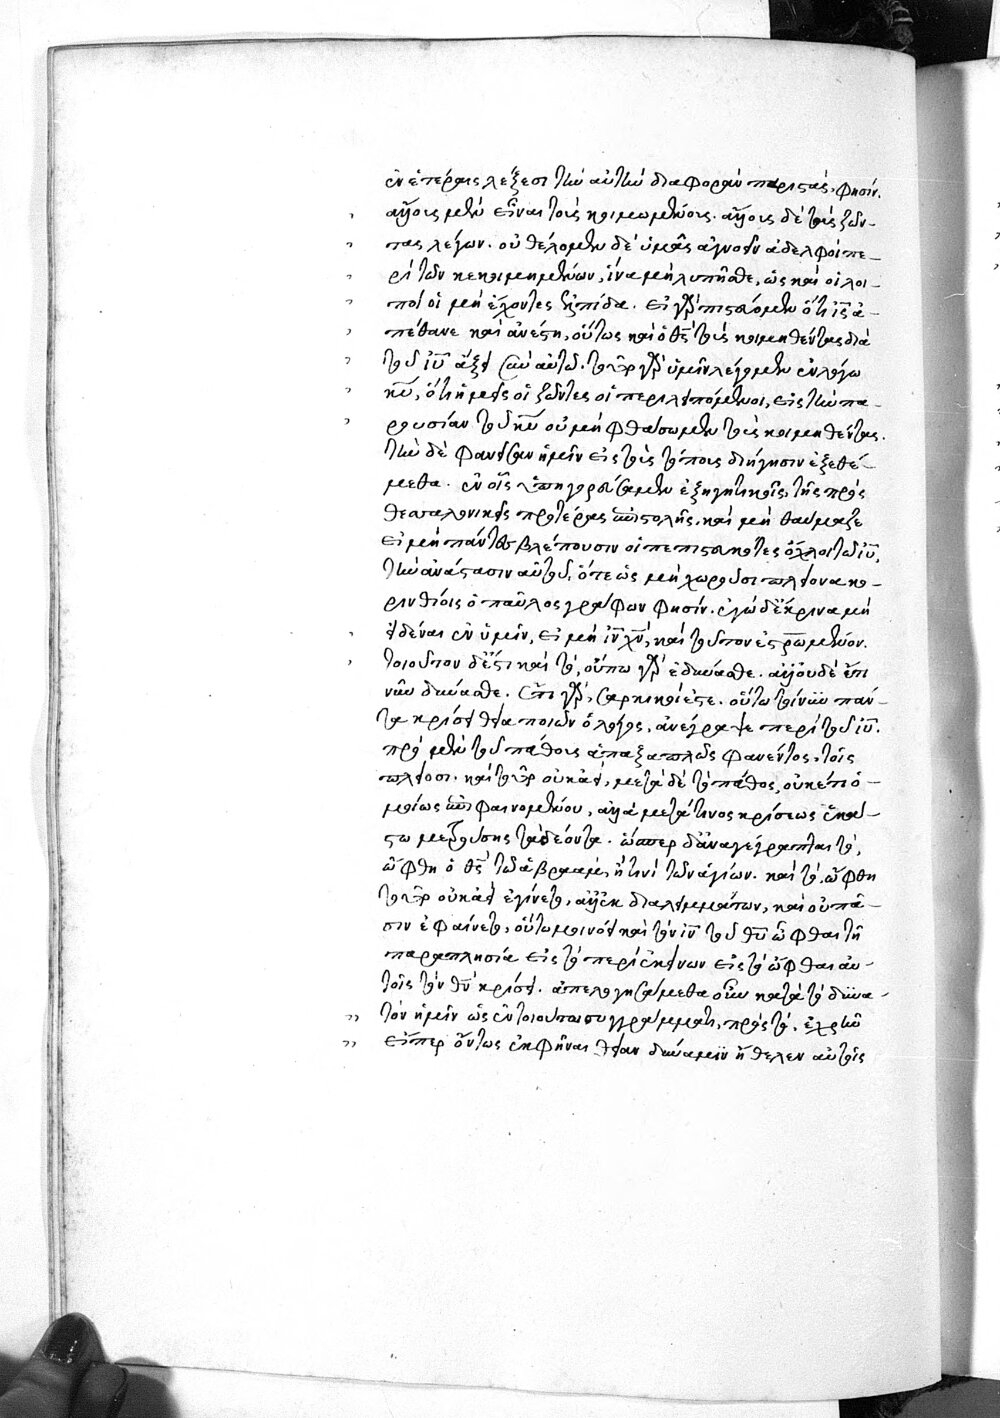 ἐν ἑτέραις λέξεσι τὴν αὐτὴν διαφορὰν παριστάς, φησίν.
ἄλλους μὲν εἶναι τοὺς κοιμωμένους. ἄλλους δὲ τοὺς ζῶν-
τας λέγων. οὐ θέλομεν δὲ ὑμᾶς ἀγνοεῖν ἀδελφοὶ πε-
ρὶ τῶν κεκοιμημένων, ἵνα μὴ λυπῆσθε, ὡς καὶ οἱ λοι-
ποὶ οἱ μὴ ἔχοντες ἐλπίδα. εἰ γὰρ πιστεύομεν ὅτι ις ἀ-
πέθανε καὶ ἀνέστη, οὕτως καὶ ὁ θς τοὺς κοιμηθέντας διὰ
τοῦ ιυ ἄξει σὺν αὐτῷ. τοῦτο γὰρ ὑμῖν λέγομεν ἐν λόγω
κυ, ὅτι ἡμεῖς οἱ ζῶντες οἱ περιλειπόμενοι, εἰς τὴν πα-
ρουσίαν τοῦ κυ οὐ μὴ φθάσωμεν τοὺς κοιμηθέντας.
τὴν δὲ φανεῖσαν ἡμῖν εἰς τοὺς τόπους διήγησιν ἐξεθέ-
μεθα. ἐν οἷς ὑπηγορεύσαμεν ἐξηγητικοῖς τῆς πρὸς
θεσσαλονικεῖς προτέρας ἐπιστολῆς. καὶ μὴ θαύμαζε
εἰ μὴ πάντα βλέπουσιν οἱ πεπιστευκότες ὄχλοι τῶ ιυ,
τὴν ἀνάστασιν αὐτοῦ, ὅτε ὡς μὴ χωροῦσι πλείονα κο-
ρινθίοις ὁ παῦλος γράφων φησίν. ἐγὼ δὲ ἔκρινα μὴ
εἰδέναι ἐν ὑμῖν, εἰ μὴ ιν χν, καὶ τοῦτον ἐστρωμένον.
τοιοῦτον δέ ἐστι καὶ τό, οὔπω γὰρ ἐδύνασθε. ἀλλ' οὐδὲ ἔτι
νῦν δύνασθε. ἔτι γὰρ, σαρκικοί ἐστε. οὕτω τοίνυν πάν-
τα κρίσει θεία ποιῶν ὁ λόγος, ἀνέγραψε περὶ τοῦ ιυ.
πρὸ μὲν τοῦ πάθους ἁπαξαπλῶς φανέντος, τοῖς
πλείοσι. καὶ τοῦτο οὐκ ἀεί, μετὰ δὲ τὸ πάθος, οὐκέτι ὁ-
μοίως ἐπιφαινομένου, ἀλλὰ μετά τινος κρίσεως ἑκά-
στω μετρούσης τὰ δέοντα. ὥσπερ δ' ἀναγέγραπται τό,
ὤφθη ὁ θς τῶ ἀβραάμ, ἤ τινι τῶν ἁγίων. καὶ τὸ ὤφθη
τοῦτο οὐκ ἀεὶ ἐγίνετο, ἀλλ' ἐκ διαλειμμάτων, καὶ οὐ πᾶ-
σιν ἐφαίνετο, οὕτω μοι νόει καὶ τὸν υν τοῦ θυ ὦφθαι τῆ
παραπλησία εἰς τὸ περὶ ἐκείνων εἰς τὸ ὦφθαι αὐ-
τοῖς τὸν θν κρίσει. ἀπελογησάμεθα οὖν κατὰ τὸ δυνα-
τὸν ἡμῖν ὡς ἐν τοιούτω συγγράμματι, πρὸς τό, ἐχρῆν
εἴπερ ὄντως ἐκφῆναι θείαν δύναμιν ἤθελεν αὐτοῖς